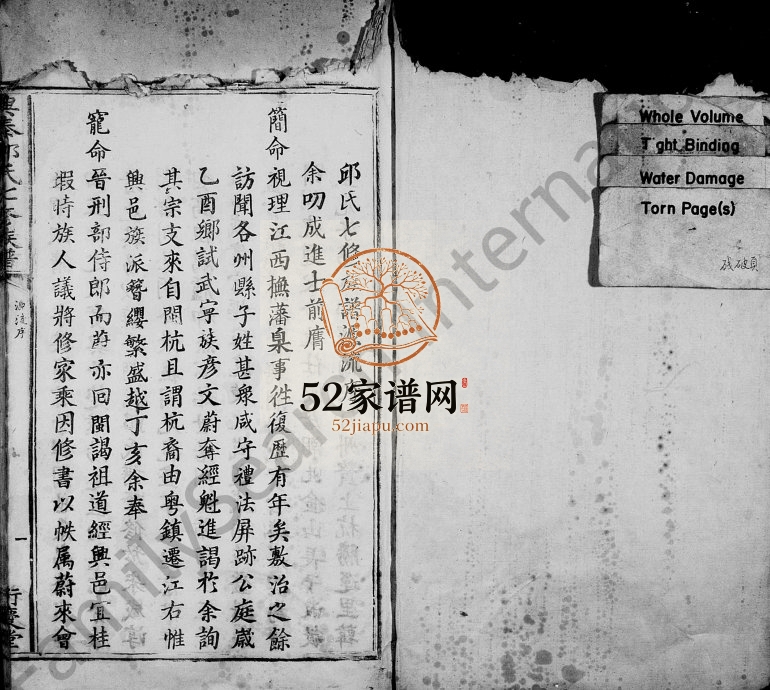 邱氏七修族譜源流序
余叨成進士前膺
簡命視理江西撫藩臬事徃復歷有年矣敷治之餘
訪聞各州縣子姓甚衆咸守禮法屏跡公庭嵗
乙酉鄉試武寧族彦文蔚奪經魁進謁於余詢
其宗支來自閩杭且謂杭裔由粤鎮遷江右惟
興邑族派簪纓繁盛越丁亥余奉
寵命晉刑部侍郎而蔚亦回閩謁祖道經興邑宜桂
暇時族人議將修家乘因修書以帙属蔚來會
源流序
一
Whole Volume
Tight Binding
Water Damage
Torn Page(s)
残破頁
52家谱网
52jiapu.com
FamilySearch International